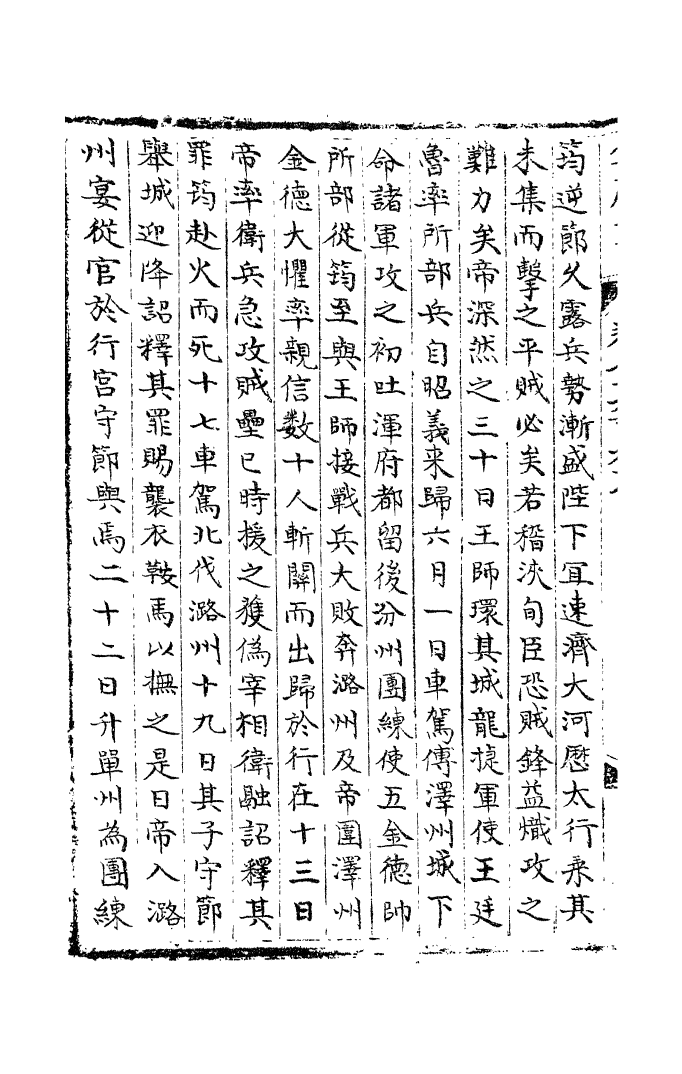 筠逆節久露兵勢漸盛陛下宜速濟大河歷太行乘其
未集而擊之平賊必矣若稽浹旬臣恐賊鋒益熾攻之
難力矣帝深然之三十日王師環其城龍捷軍使王廷
魯率所部兵自昭義来歸六月一日車駕傅澤州城下
命諸軍攻之初吐渾府都留後汾州團練使五金德帥
所部從筠至與王師接戰兵大敗奔潞州及帝圍澤州
金德大懼率親信数十人斬關而出歸於行在十三日
帝率衛兵急攻賊壘巳時援之獲偽宰相衛融詔釋其
罪筠赴火而死十七車駕北伐潞州十九日其子守節
舉城迎降詔釋其罪賜襲衣鞍馬以撫之是日帝入潞
州宴從官於行宮守節與焉二十二日升單州為團練